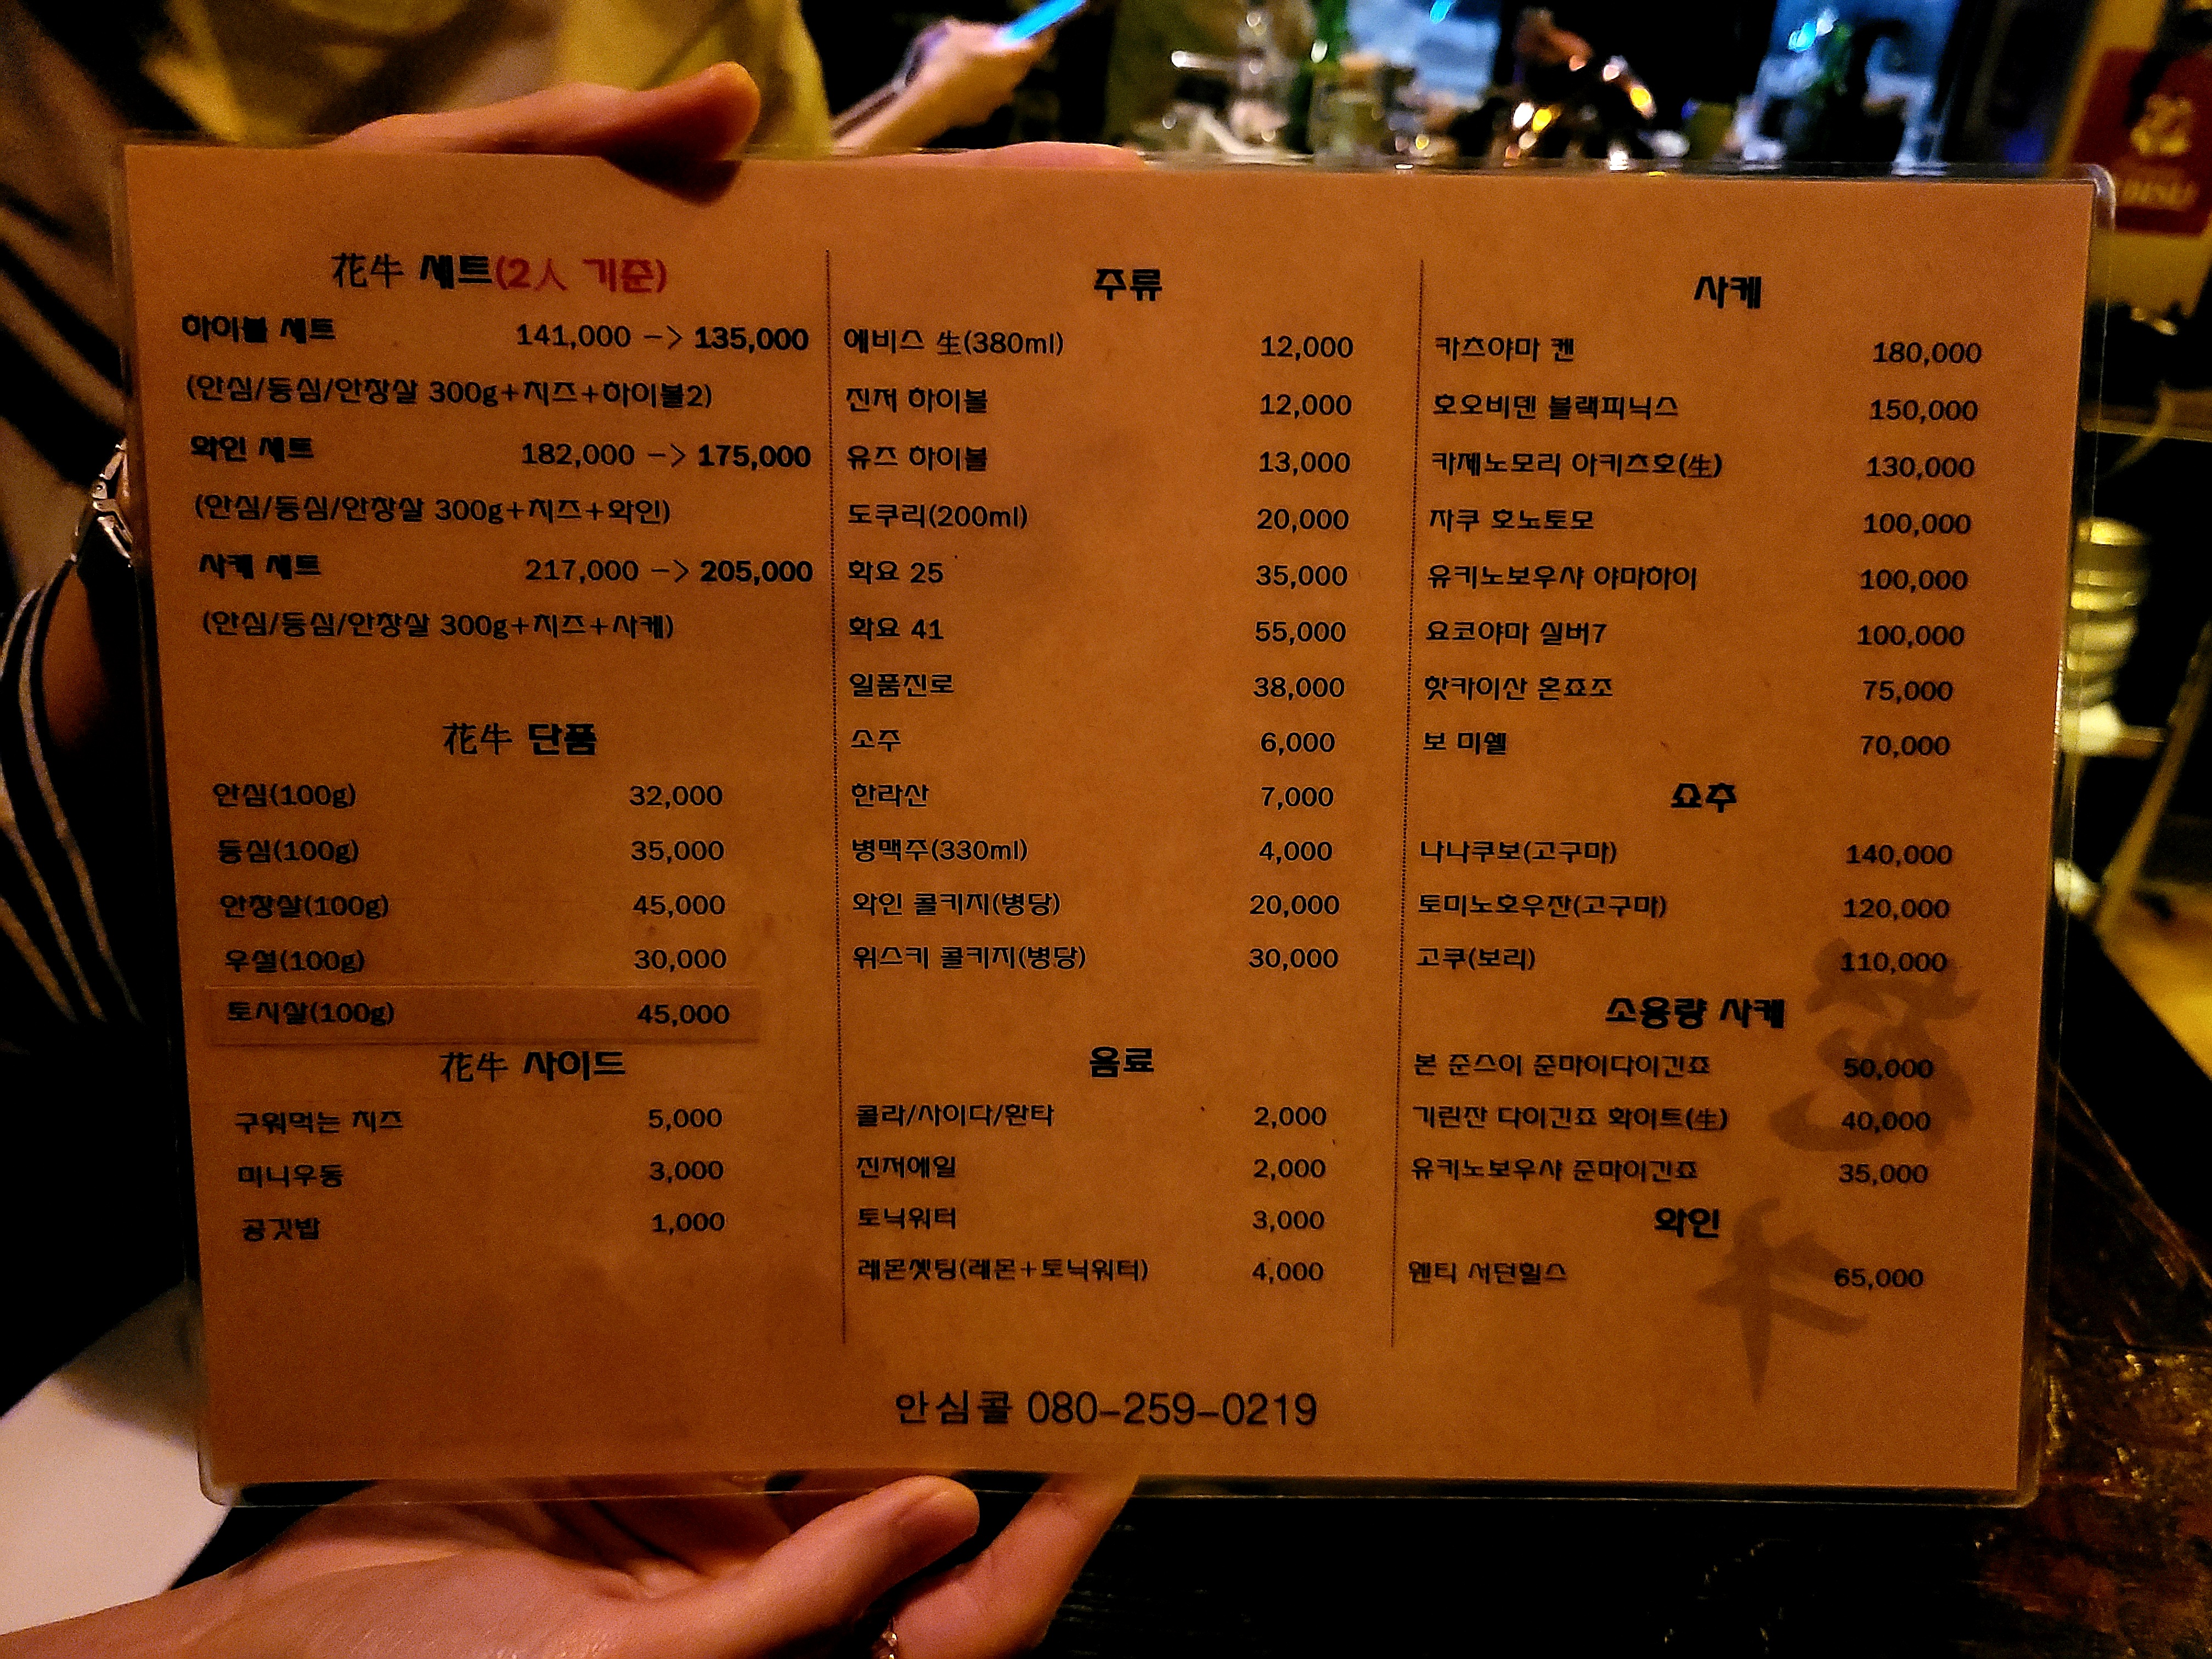 花牛 세트(2人 기준)
하이볼 세트 141,000 -> 135,000
(안심/등심/안창살 300g+치즈+하이볼2)
와인 세트 182,000 -> 175,000
(안심/등심/안창살 300g+치즈+와인)
사케 세트 217,000 -> 205,000
(안심/등심/안창살 300g+치즈+사케)
花牛 단품
안심(100g) 32,000
등심(100g) 35,000
안창살(100g) 45,000
우설(100g) 30,000
토시살(100g) 45,000
花牛 사이드
구워먹는 치즈 5,000
미니우동 3,000
공깃밥 1,000
주류
에비스 生(380ml) 12,000
진저 하이볼 12,000
유즈 하이볼 13,000
도쿠리(200ml) 20,000
화요 25 35,000
화요 41 55,000
일품진로 38,000
소주 6,000
한라산 7,000
병맥주(330ml) 4,000
와인 콜키지(병당) 20,000
위스키 콜키지(병당) 30,000
음료
콜라/사이다/환타 2,000
진저에일 2,000
토닉워터 3,000
레몬셋팅(레몬+토닉워터) 4,000
사케
카츠야마 켄 180,000
호오비덴 블랙피닉스 150,000
카제노모리 아키츠호(生) 130,000
자쿠 호노토모 100,000
유키노보우샤 야마하이 100,000
요코야마 실버7 100,000
핫카이산 혼죠조 75,000
보 미쉘 70,000
쇼추
나나쿠보(고구마) 140,000
토미노호우잔(고구마) 120,000
고쿠(보리) 110,000
소용량 사케
본 준스이 준마이다이긴죠 50,000
기린잔 다이긴죠 화이트(生) 40,000
유키노보우샤 준마이긴죠 35,000
와인
웬티 서던힐스 65,000
안심콜 080-259-0219